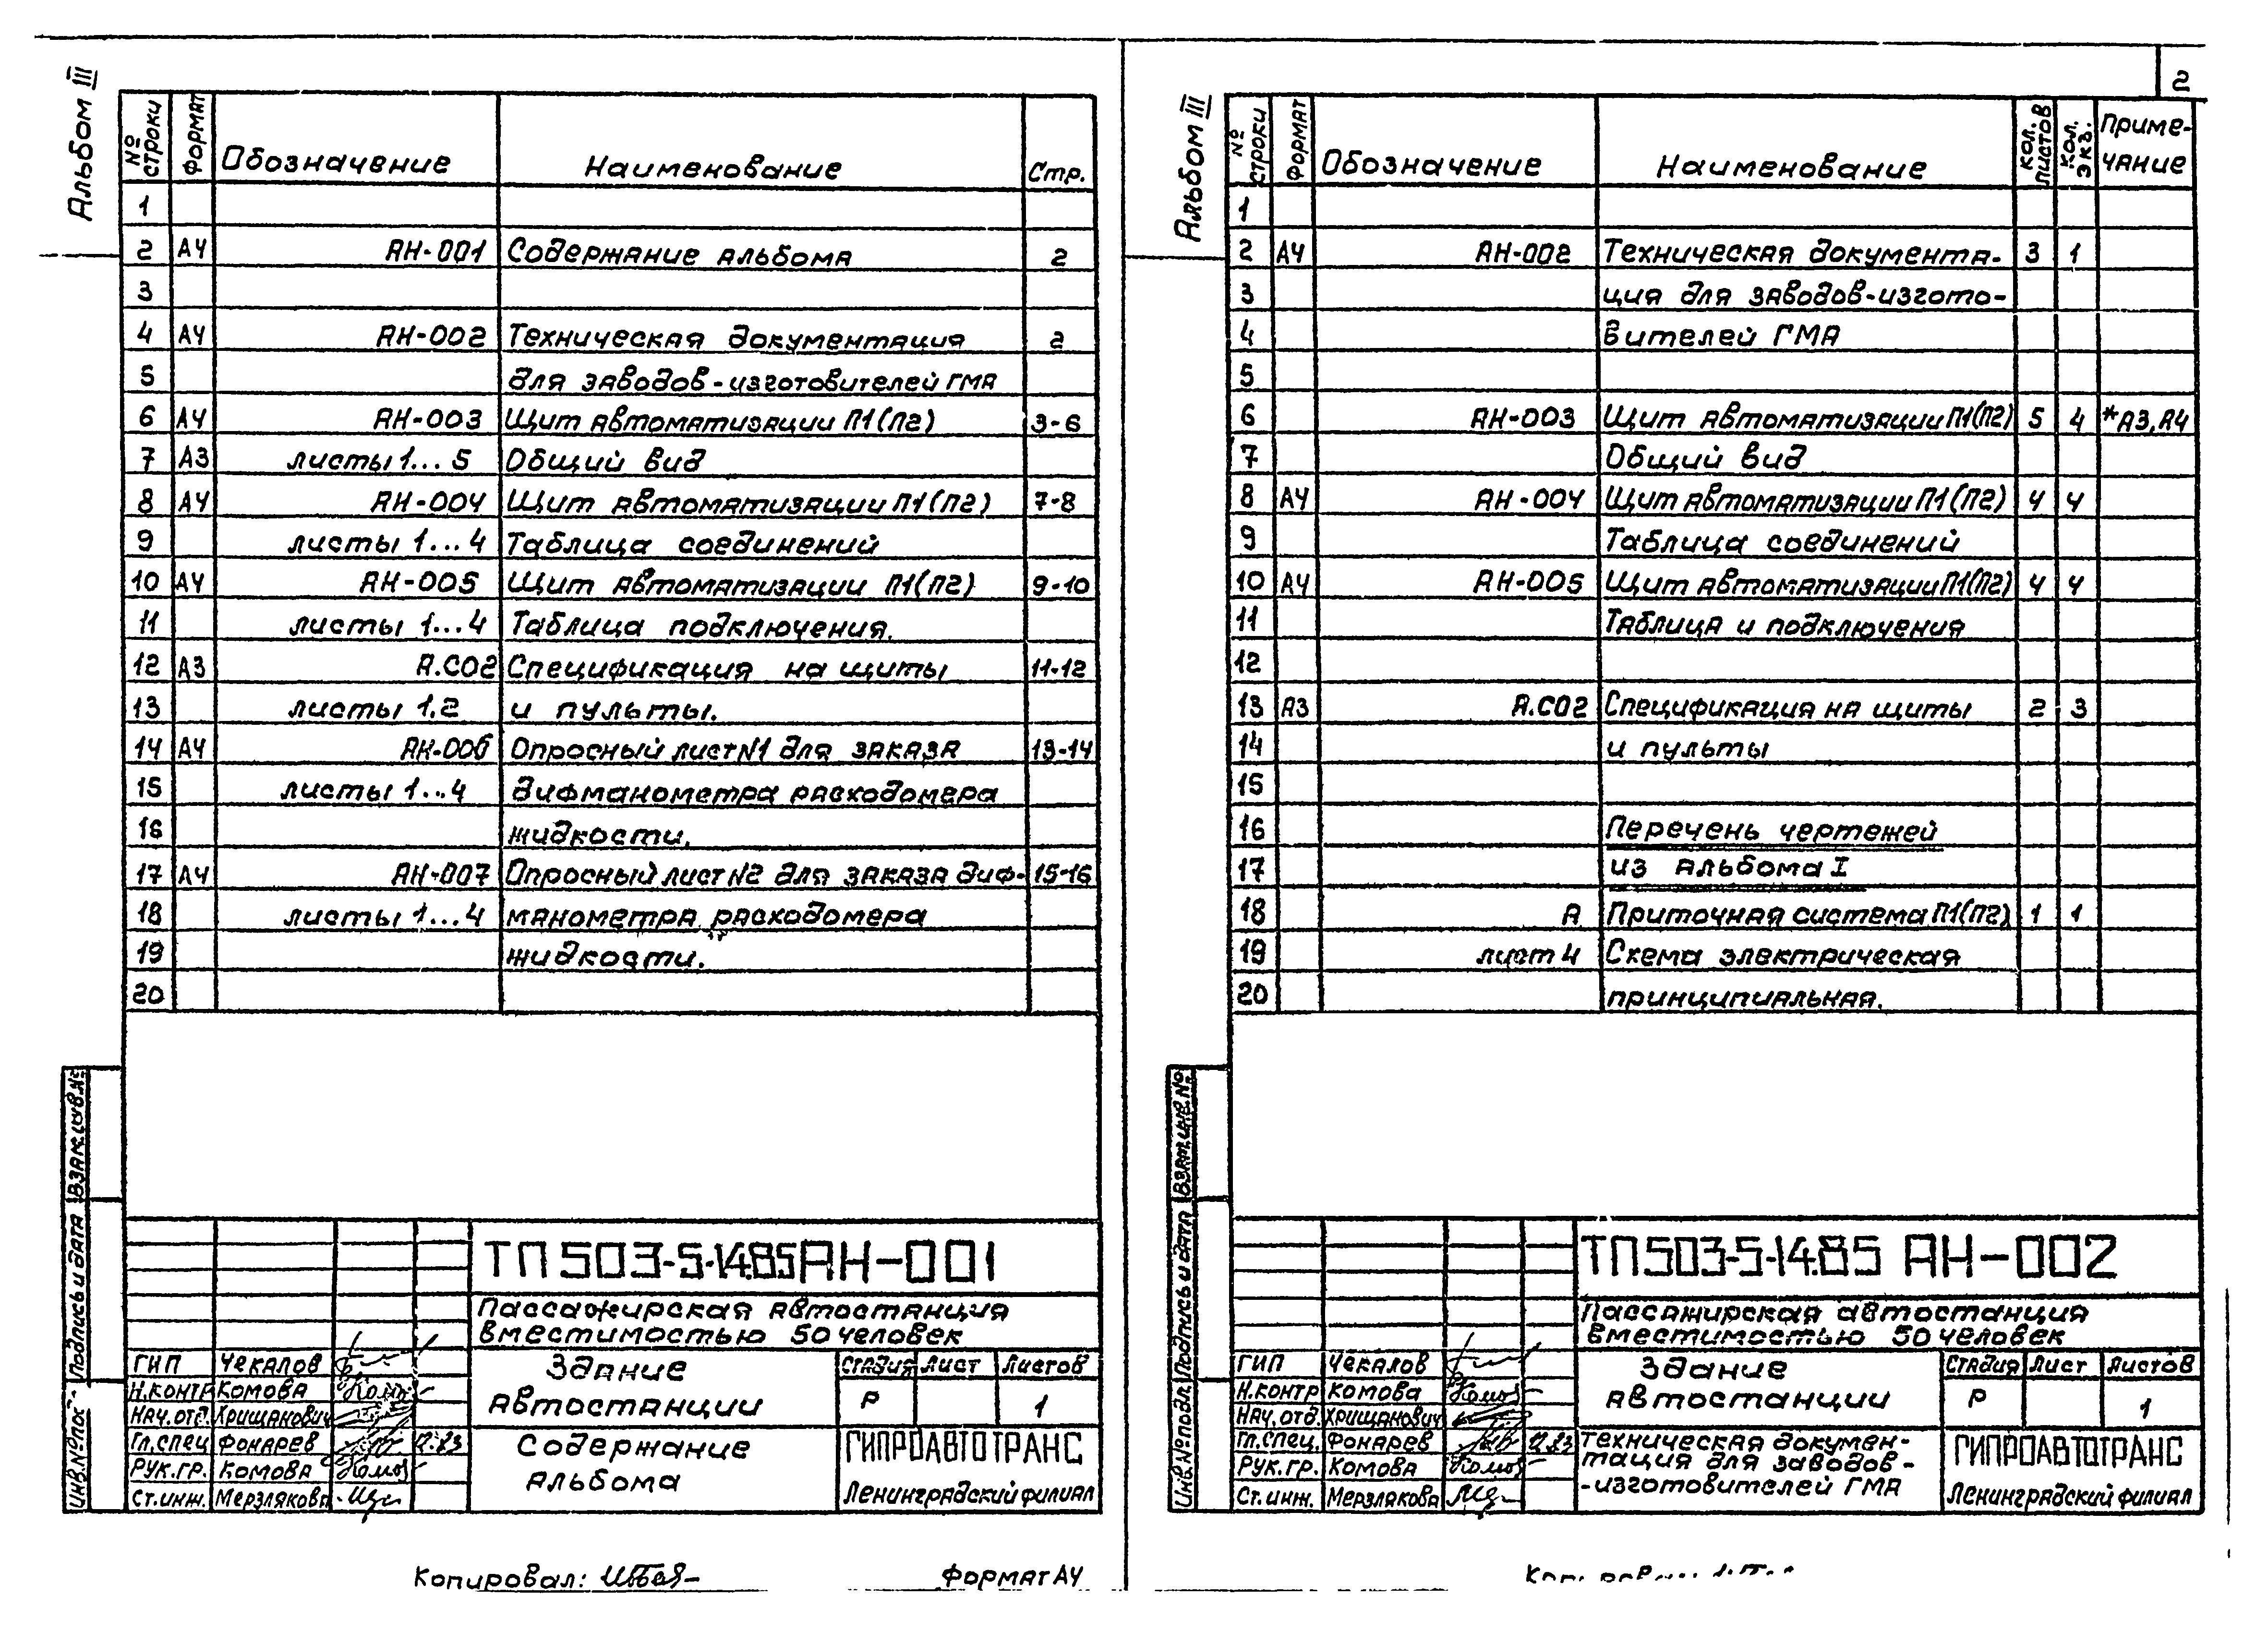 2
Альбом III
№ строки Формат Обозначение Наименование Стр.
1
2 А4 АН-001 Содержание альбома 2
3
4 А4 АН-002 Техническая документация 2
5 для заводов-изготовителей ГМА
6 А4 АН-003 Щит автоматизации П1(П2) 3-6
7 А3 листы 1...5 Общий вид
8 А4 АН-004 Щит автоматизации П1(П2) 7-8
9 листы 1...4 Таблица соединений
10 А4 АН-005 Щит автоматизации П1(П2) 9-10
11 листы 1...4 Таблица подключения.
12 А3 А.СО2 Спецификация на щиты 11-12
13 листы 1.2 и пульты.
14 А4 АН-006 Опросный лист N1 для заказа 13-14
15 листы 1...4 дифманометра расходомера
16 жидкости.
17 А4 АН-007 Опросный лист N2 для заказа диф- 15-16
18 листы 1...4 манометра расходомера
19 жидкости.
20
Взам.инв.№
Подпись и дата
Инв.№ под
ТП 503-5-14.85 АН-001
Пассажирская автостанция
вместимостью 50 человек
ГИП Чекалов
Н.контр Комова
Нач.отд. Хрищанович
Гл.спец Фонарев 12.83
Рук.гр. Комова
Ст.инж. Мерзлякова
Здание
автостанции
Стадия Лист Листов
Р 1
Содержание
альбома
ГИПРОАВТОТРАНС
Ленинградский филиал
Копировал:
Формат А4
Альбом III
№ строки Формат Обозначение Наименование Кол. листов Кол. экз. Приме-
чание
1
2 А4 АН-002 Техническая документа- 3 1
3 ция для заводов-изгото-
4 вителей ГМА
5
6 АН-003 Щит автоматизации П1(П2) 5 4 *А3,А4
7 Общий вид
8 А4 АН-004 Щит автоматизации П1(П2) 4 4
9 Таблица соединений
10 А4 АН-005 Щит автоматизации П1(П2) 4 4
11 Таблица и подключения
12
13 А3 А.СО2 Спецификация на щиты 2 3
14 и пульты
15
16 Перечень чертежей
17 из альбома I
18 А Приточная система П1(П2) 1 1
19 лист 4 Схема электрическая
20 принципиальная.
Взам.инв.№
Подпись и дата
Инв.№ подл.
ТП 503-5-14.85 АН-002
Пассажирская автостанция
вместимостью 50 человек
ГИП Чекалов
Н.контр Комова
Нач.отд. Хрищанович
Гл.спец. Фонарев 12.83
Рук.гр. Комова
Ст.инж. Мерзлякова
Здание
автостанции
Стадия Лист Листов
Р 1
Техническая докумен-
тация для заводов-
-изготовителей ГМА
ГИПРОАВТОТРАНС
Ленинградский филиал